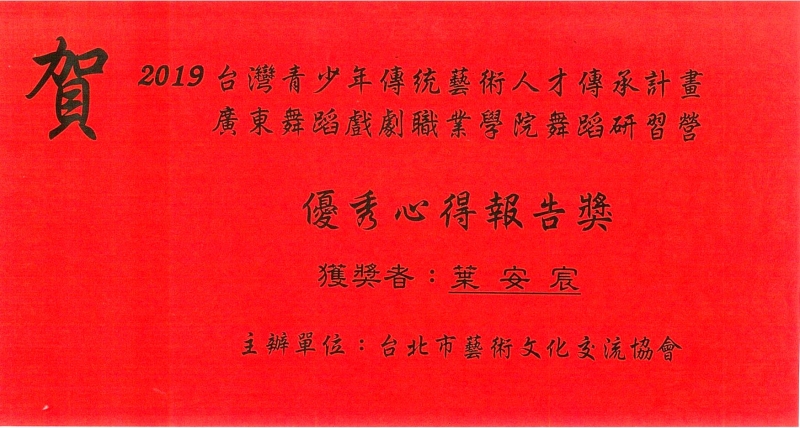 賀
2019台灣青少年傳統藝術人才傳承計畫
廣東舞蹈戲劇職業學院舞蹈研習營
優秀心得報告獎
獲獎者：葉安宸
主辦單位：台北市藝術文化交流協會